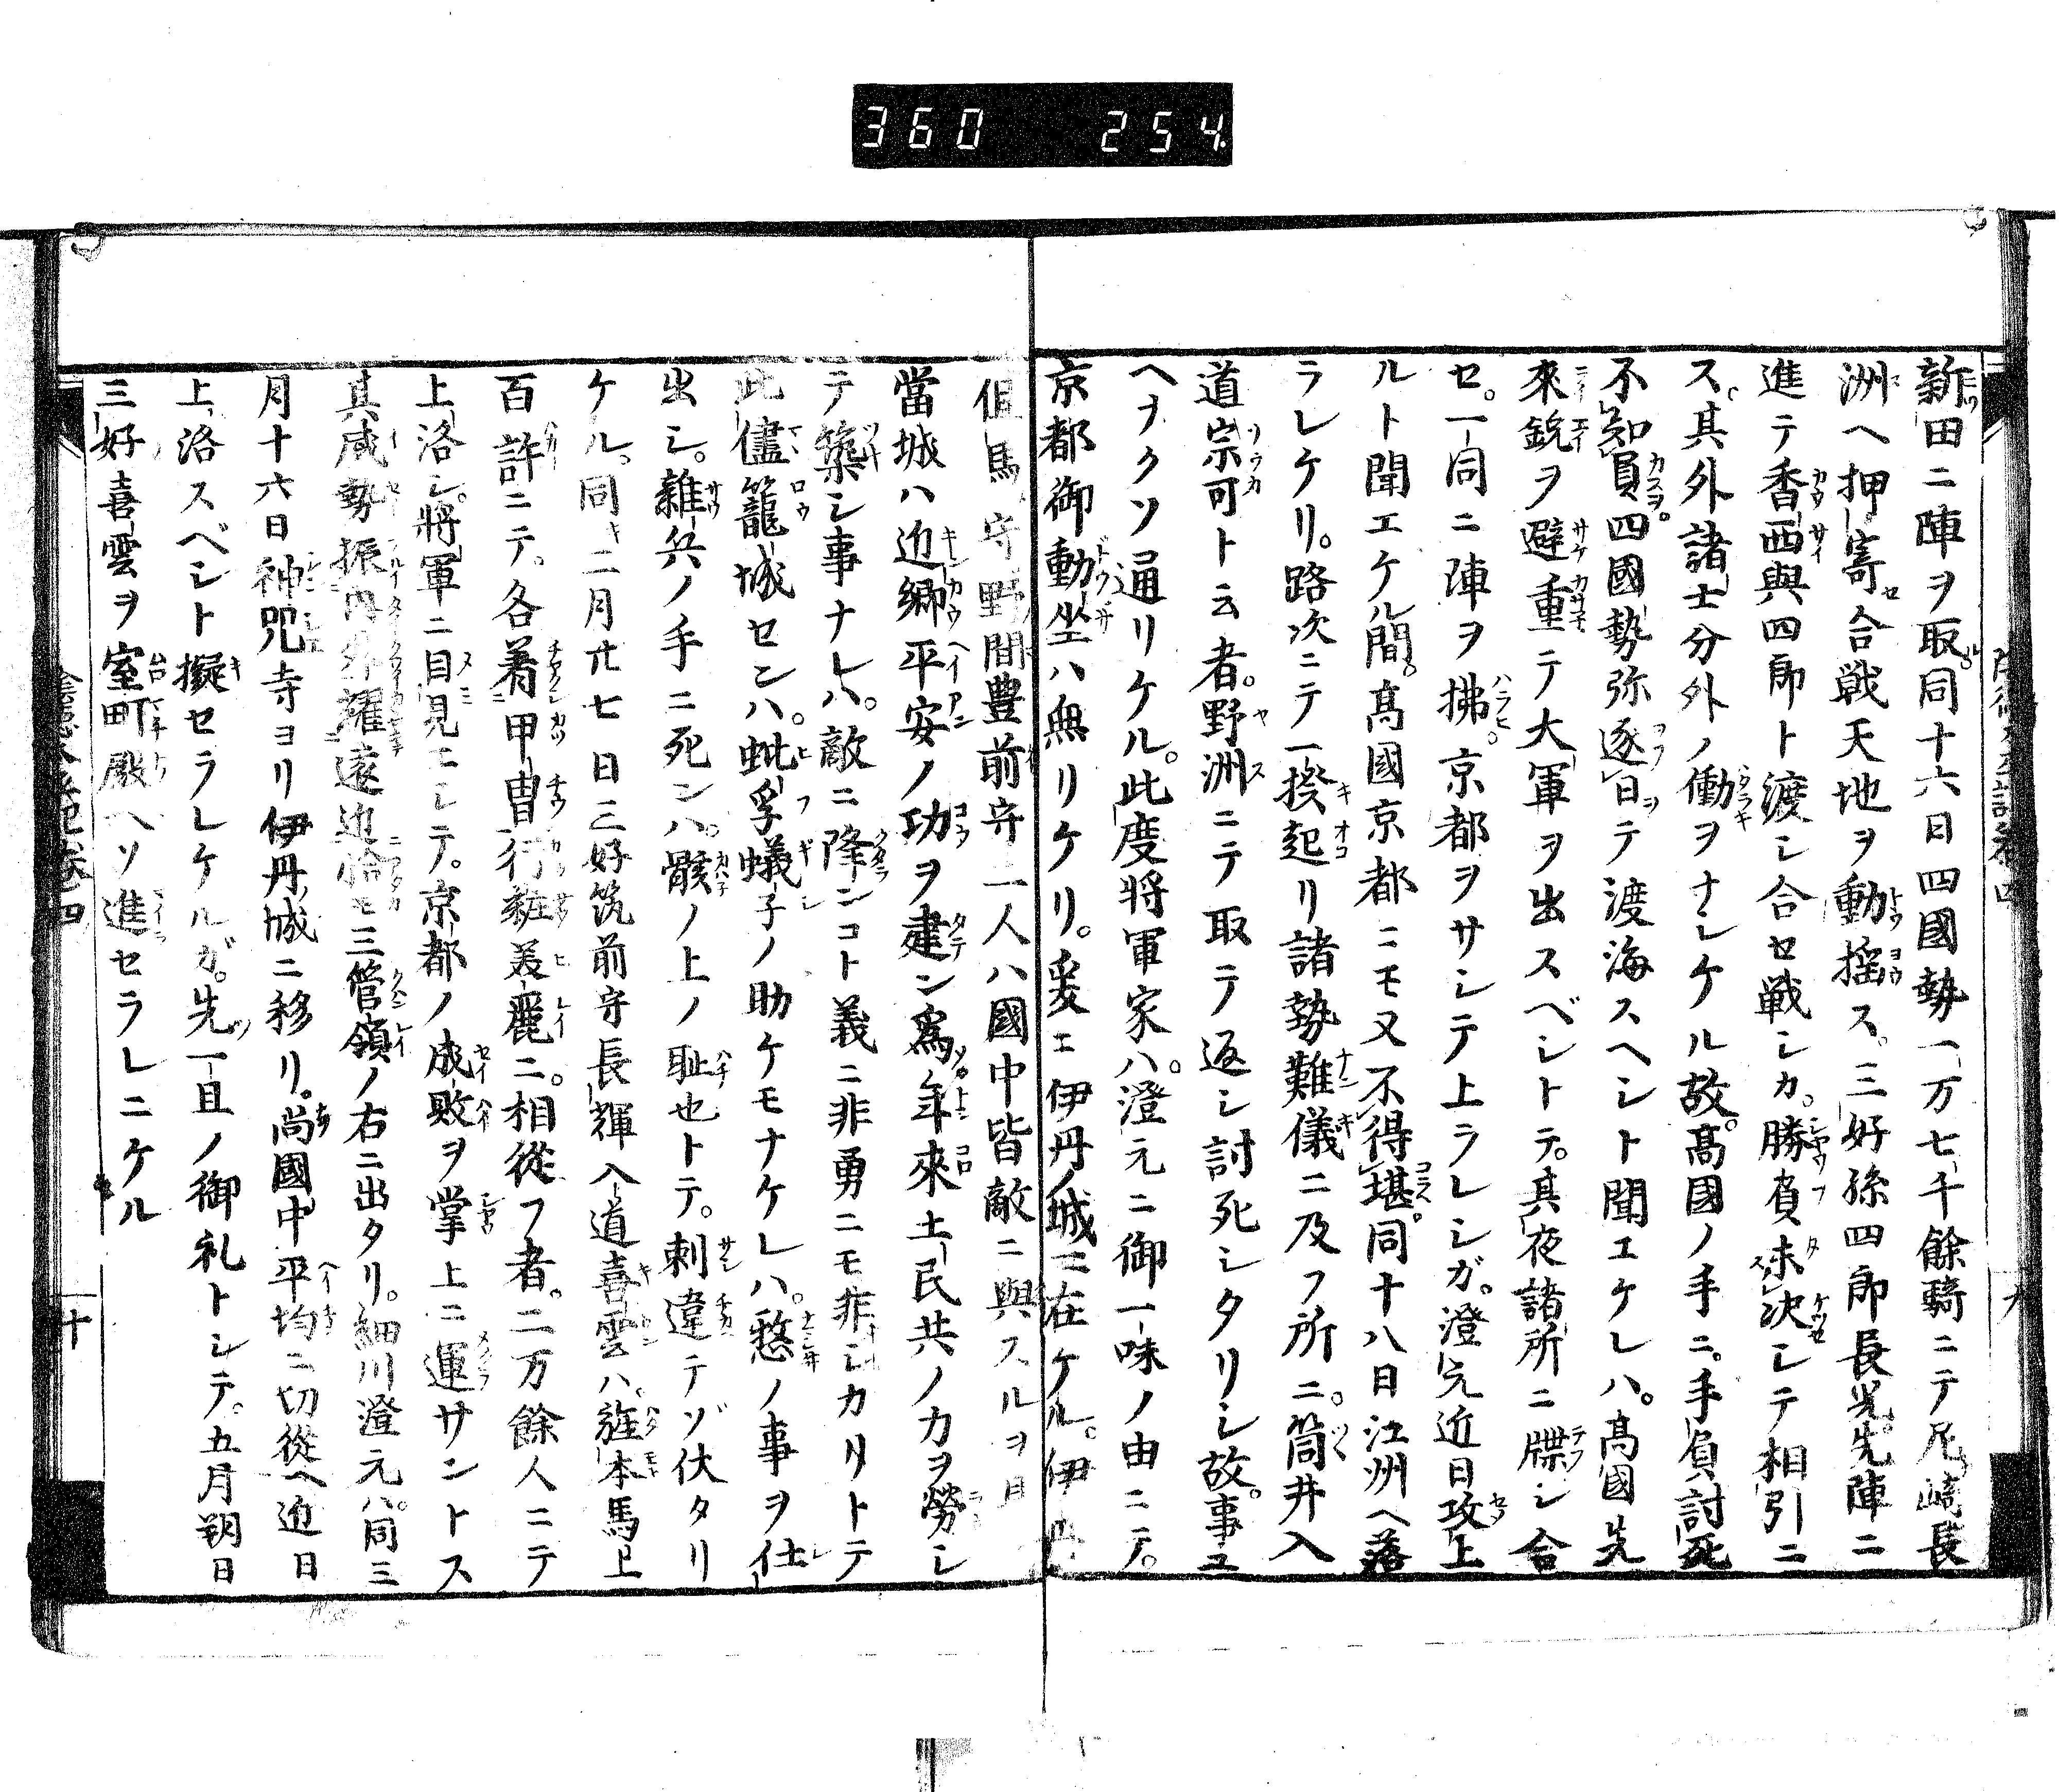 360 254
新田ニ陣ヲ取同十六日四國勢一万七千餘騎ニテ尼崎長
洲ヘ押寄合戦天地ヲ動揺ス。三好孫四郎長光先陣ニ
進テ香西與四郎ト渡シ合セ戦シカ。勝負未決シテ相引ニ
ス其外諸士分外ノ働ヲナシケル故。髙國ノ手ニ手負討死
不知員。四國勢弥逐日テ渡海スヘシト聞エケレハ。髙國先
來銳ヲ避重テ大軍ヲ出スベシトテ。其夜諸所ニ牒シ合
セ。一同ニ陣ヲ拂。京都ヲサシテ上ラレシガ。澄元近日攻上
ルト聞エケル間。髙國京都ニモ又不得堪。同十八日江洲ヘ落
ラレケリ。路次ニテ一揆起リ諸勢難儀ニ及フ所ニ。筒井入
道宗可ト云者。野洲ニテ取テ返シ討死シタリシ故。事ユ
ヘナクソ通リケル。此度將軍家ハ。澄元ニ御一味ノ由ニテ。
京都御動坐ハ無リケリ。爰ニ伊丹ノ城ニ在ケル。伊丹
但馬守野間豊前守二人ハ國中皆敵ニ與スルヲ見
當城ハ近郷平安ノ功ヲ建ン為。年來土民共ノ力ヲ勞シ
テ築シ事ナレハ。敵ニ降ンコト義ニ非勇ニモ非シカリトテ
此儘籠城センハ。蚍蜉蟻子ノ助ケモナケレハ。憖ノ事ヲ仕
出シ。雜兵ノ手ニ死ンハ。骸ノ上ノ耻也トテ。刺違テゾ伏タリ
ケル。同二月廿七日三好筑前守長輝入道喜雲ハ。旌本馬上
百許ニテ。各着甲冑行粧美麗ニ。相從フ者。二万餘人ニテ
上洛シ。將軍ニ目見モシテ。京都ノ成敗ヲ掌上ニ運サントス
其威勢振内外耀遠近恰モ三管領ノ右ニ出タリ。細川澄元ハ。同三
月十六日神咒寺ヨリ伊丹城ニ移リ。尚國中平均ニ切從ヘ近日
上洛スベシト擬セラレケルガ。先一旦ノ御礼トシテ。五月朔日
三好喜雲ヲ室町殿ヘソ進セラレニケル
十